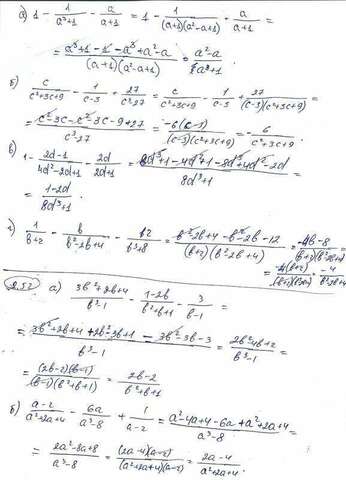 а) 1 - 1/(a³+1) - a/(a+1) = 1 - 1/((a+1)(a²-a+1)) - a/(a+1) =
= (a³+1-1-a³+a²-a)/((a+1)(a²-a+1)) = (a²-a)/(a³+1)
б) c/(c²+3c+9) - 1/(c-3) + 27/(c³-27) = c/(c²+3c+9) - 1/(c-3) + 27/((c-3)(c²+3c+9)) =
= (c²-3c-c²-3c-9+27)/(c³-27) = -6(c-3)/((c-3)(c²+3c+9)) = -6/(c²+3c+9)
в) 1 - (2d-1)/(4d²-2d+1) - 2d/(2d+1) = (8d³+1-4d²+1-8d³+4d²-2d)/(8d³+1)
= (1-2d)/(8d³+1)
г) 1/(b+2) - b/(b²-2b+4) - 12/(b³+8) = (b²-2b+4-b²-2b-12)/((b+2)(b²-2b+4)) = (-4b-8)/((b+2)(b²-2b+4))
= -4(b+2)/((b+2)(b²-2b+4)) = -4/(b²-2b+4)
2.52 а) (3b²+2b+4)/(b³-1) - (1-2b)/(b²+b+1) - 3/(b-1) =
= (3b²+2b+4+2b²-3b+1-3b²-3b-3)/(b³-1) = (2b²-4b+2)/(b³-1) =
= (2b-2)(b-1)/((b-1)(b²+b+1)) = (2b-2)/(b²+b+1)
б) (a-2)/(a²+2a+4) - 6a/(a³-8) + 1/(a-2) = (a²-4a+4-6a+a²+2a+4)/(a³-8) =
= (2a²-8a+8)/(a³-8) = (2a-4)(a-2)/((a²+2a+4)(a-2)) = (2a-4)/(a²+2a+4).